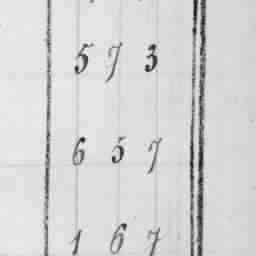 573
657
167